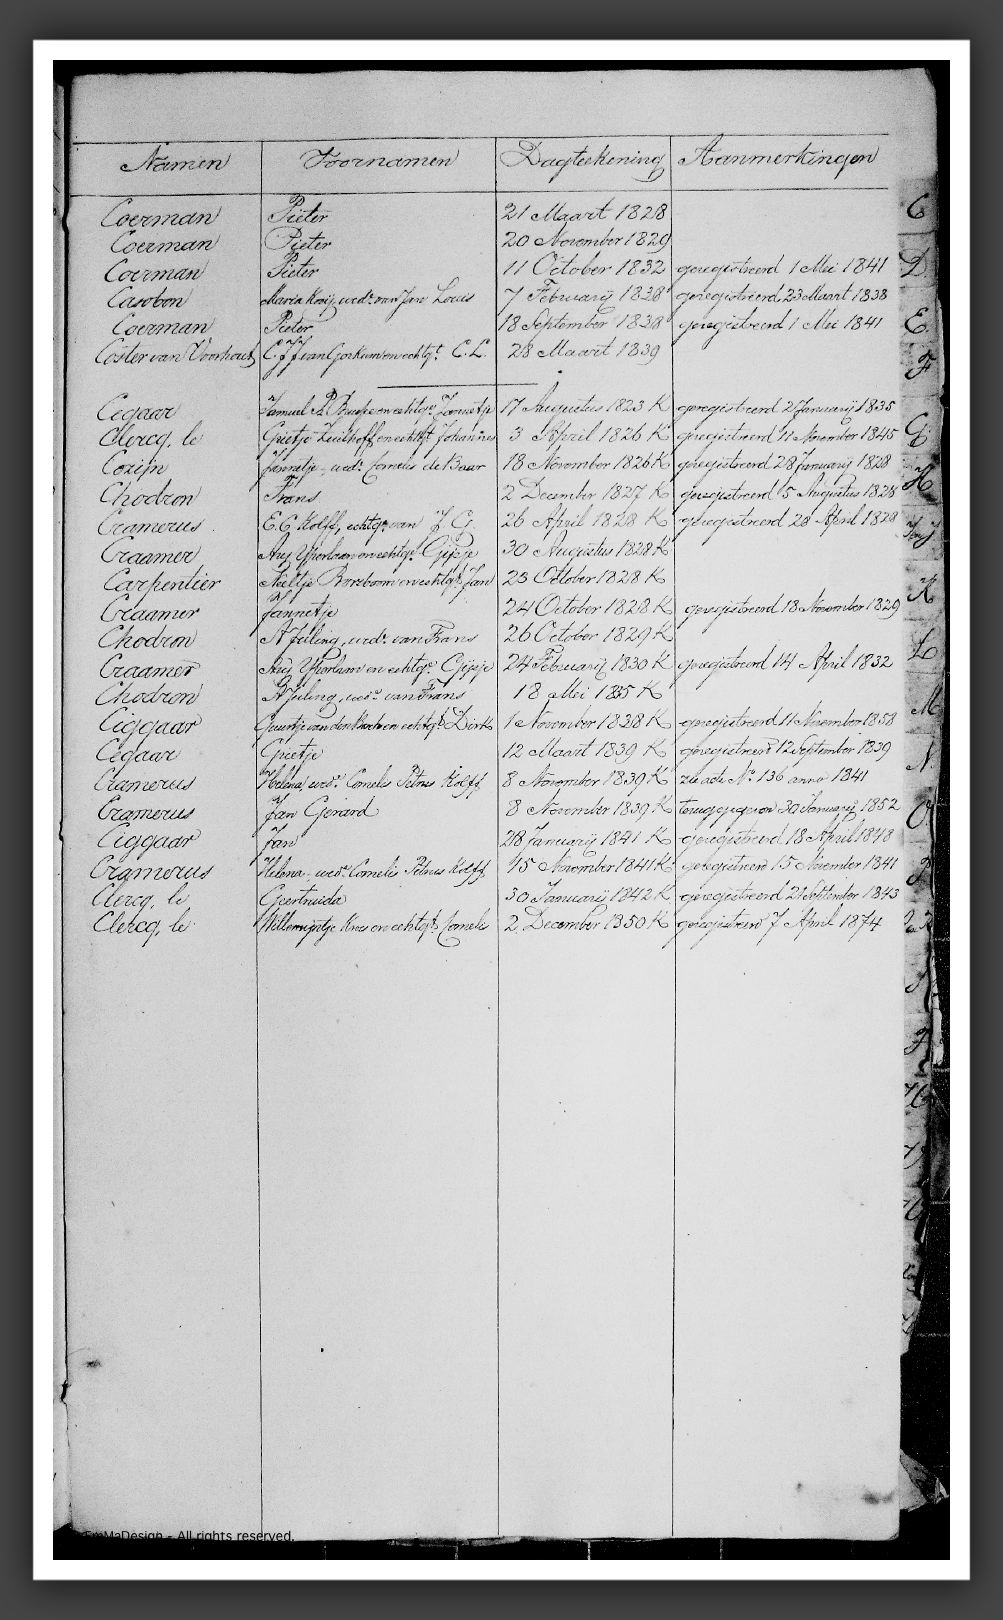 Namen Voornamen Dagteekening Aanmerkingen
Coerman Pieter 21 Maart 1828
Coerman Pieter 20 November 1829
Coerman Pieter 11 October 1832 geregistreerd 1 Mei 1841
Casobon Maria Kroij, wede. van Jan Louis 7 Februarij 1838 geregistreerd 23 Maart 1838
Coerman Pieter 18 September 1838 geregistreerd 1 Mei 1841
Coster van Voorhout, C. J. J. van Gorkum en echtgt. C. L. 28 Maart 1839
Cegaar Samuel en echtge. Jannetje 17 Augustus 1823 K geregistreerd 2 Januarij 1835
Clercq, le Grietje en echtgt. Johannes 3 April 1826 K geregistreerd 11 November 1845
Cozijn Jannetje, wede. Cornelis de Baar 18 November 1826 K geregistreerd 28 Januarij 1828
Chodron Frans 2 December 1827 K geregistreerd 5 Augustus 1828
Cramerus E. C. Kolff, echtge. van J. G. 26 April 1828 K geregistreerd 28 April 1828
Craamer Arij en echtge. Gijsje 30 Augustus 1828 K
Carpentier Neeltje Boezboom en echtgt. Jan 23 October 1828 K
Craamer Jannetje 24 October 1828 K geregistreerd 18 November 1829
Chodron A Jeiling, wede. van Frans 26 October 1829 K
Craamer Arij en echtge. Gijsje 24 Februarij 1830 K geregistreerd 14 April 1832
Chodron A Jeiling, wede. van Frans 18 Mei 1835 K
Ciggaar Geertje van der en echtgt. Dirk 1 November 1838 K geregistreerd 11 November 1858
Cegaar Grietje 12 Maart 1839 K geregistreerd 12 September 1839
Cramerus Helena, wede. Cornelis Petrus Kolff 8 November 1839 K zie acte No. 136 anno 1841
Cramerus Jan Gerard 8 November 1839 K teruggegeven 30 Januarij 1852
Ciggaar Jan 28 Januarij 1841 K geregistreerd 18 April 1848
Cramerus Helena, wede. Cornelis Petrus Kolff 15 November 1841 K geregistreerd 15 November 1841
Clercq, le Geertruida 30 Januarij 1842 K geregistreerd 21 September 1843
Clercq, le Willemijntje Kros en echtgt. Cornelis 2 December 1850 K geregistreerd 7 April 1874
C
D
E
F
G
H
K
L
M
N
O
P
EmMaDesign - All rights reserved.